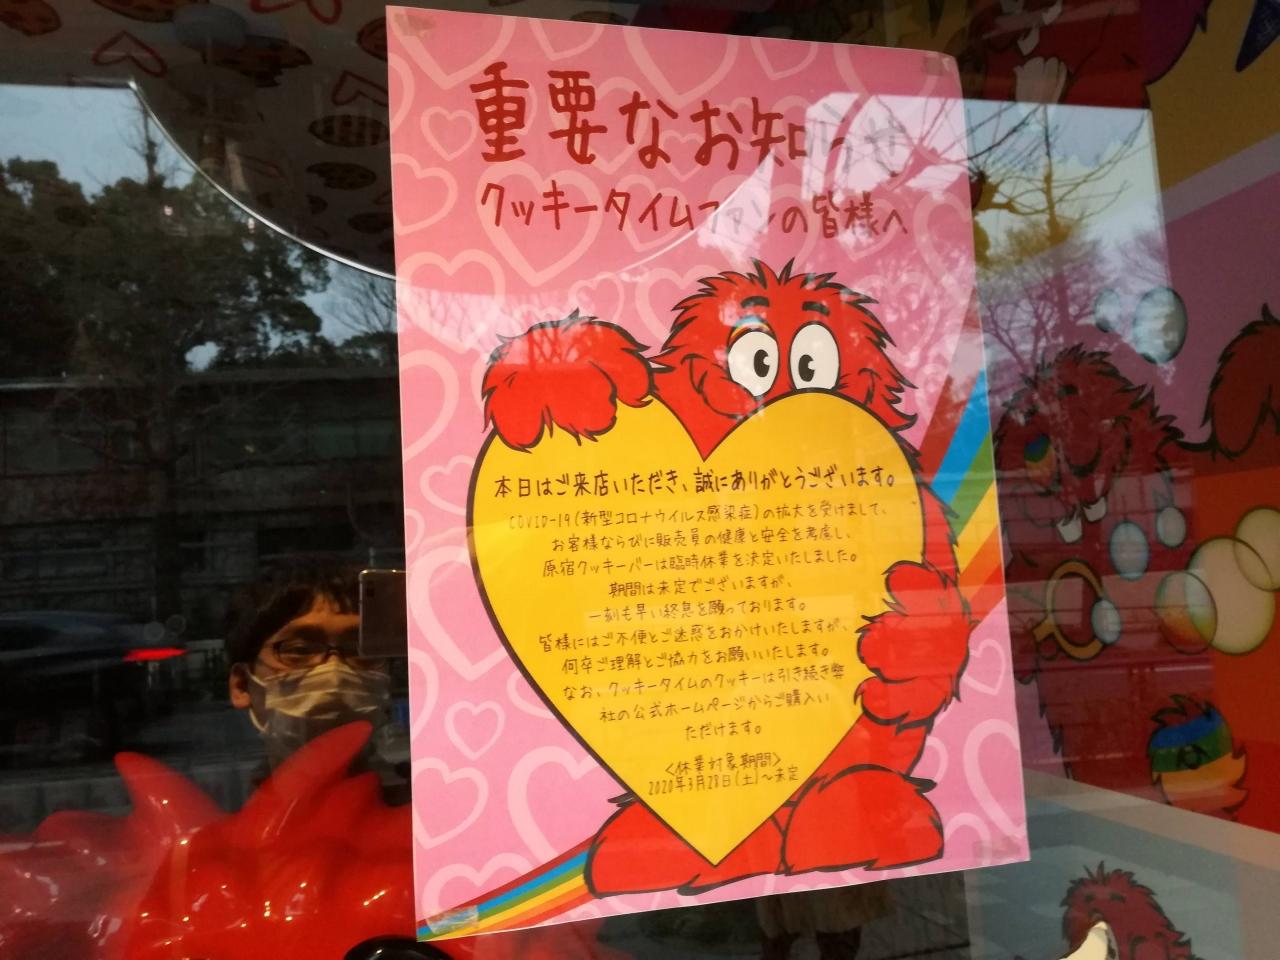 重要なお知らせ
クッキータイムファンの皆様へ
本日はご来店いただき、誠にありがとうございます。
COVID-19(新型コロナウイルス感染症)の拡大を受けまして、
お客様ならびに販売員の健康と安全を考慮し、
原宿クッキーバーは臨時休業を決定いたしました。
期間は未定でございますが、
一刻も早い終息を願っております。
皆様にはご不便とご迷惑をおかけいたしますが、
何卒ご理解とご協力をお願いいたします。
なお、クッキータイムのクッキーは引き続き弊
社の公式ホームページからご購入い
ただけます。
<休業対象期間>
2020年3月28日(土)~未定